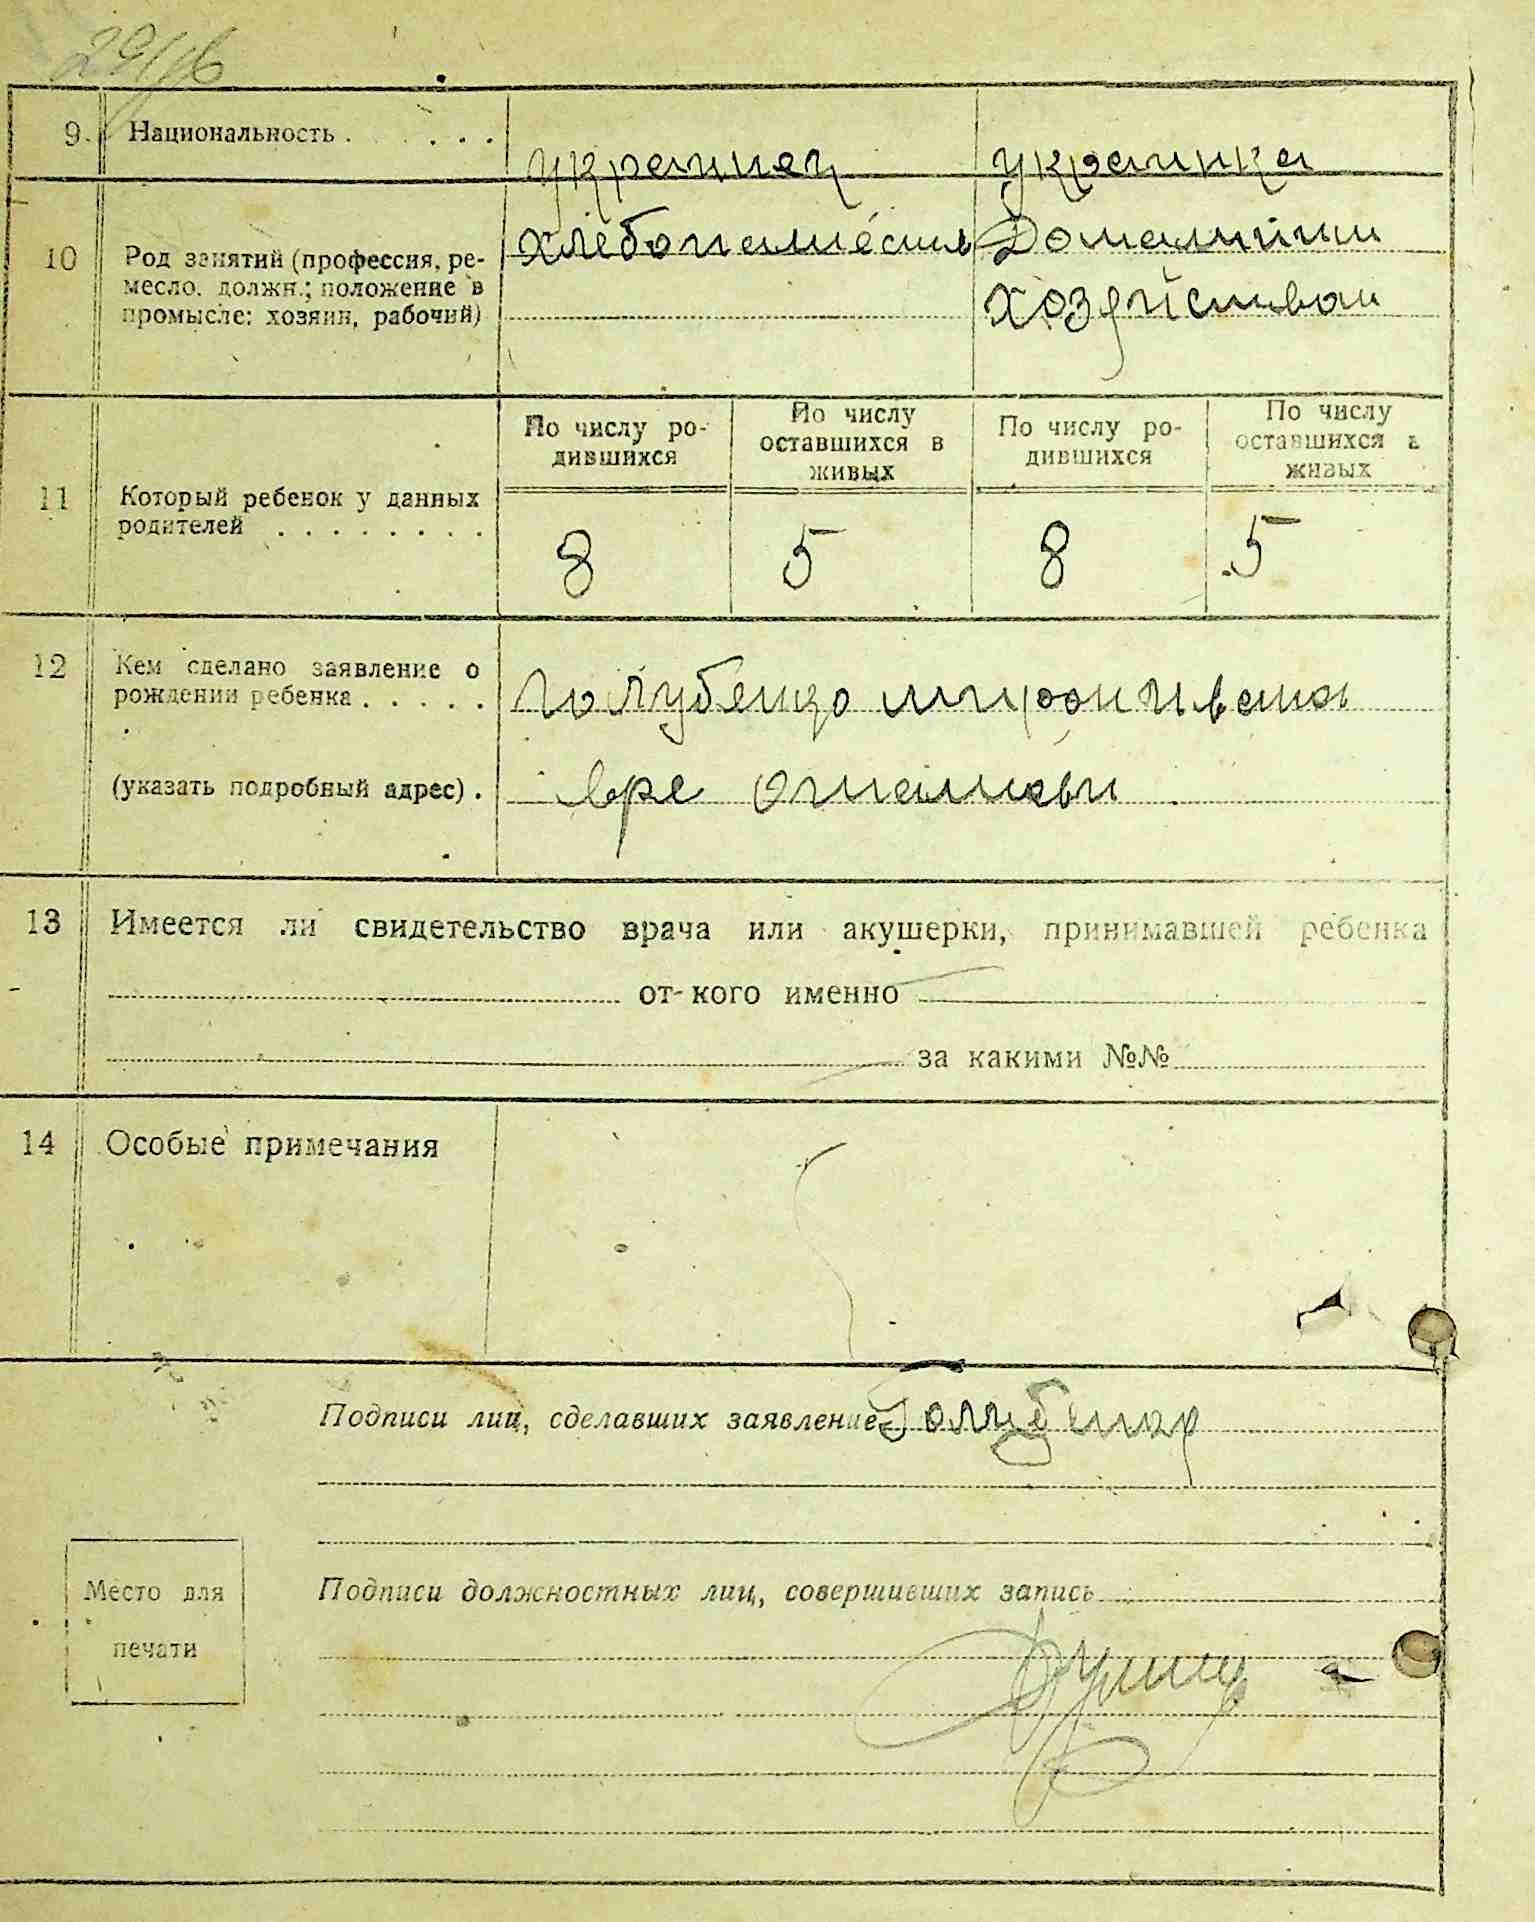 9. Национальность . . . . . .
украинец украинка
10 Род занятий (профессия, ре-
месло. должн.; положение в
промысле: хозяин, рабочий)
хлебопашество Домашним
хозяйством
11 Который ребенок у данных
родителей . . . . . . . .
По числу ро-
дившихся
По числу
оставшихся в
живых
По числу ро-
дившихся
По числу
оставшихся в
живых
8 5 8 5
12 Кем сделано заявление о
рождении ребенка . . . . .
(указать подробный адрес) .
13 Имеется ли свидетельство врача или акушерки, принимавшей ребенка
от кого именно
за какими №№
14 Особые примечания
Подписи лиц, сделавших заявление
Место для
печати
Подписи должностных лиц, совершивших запись